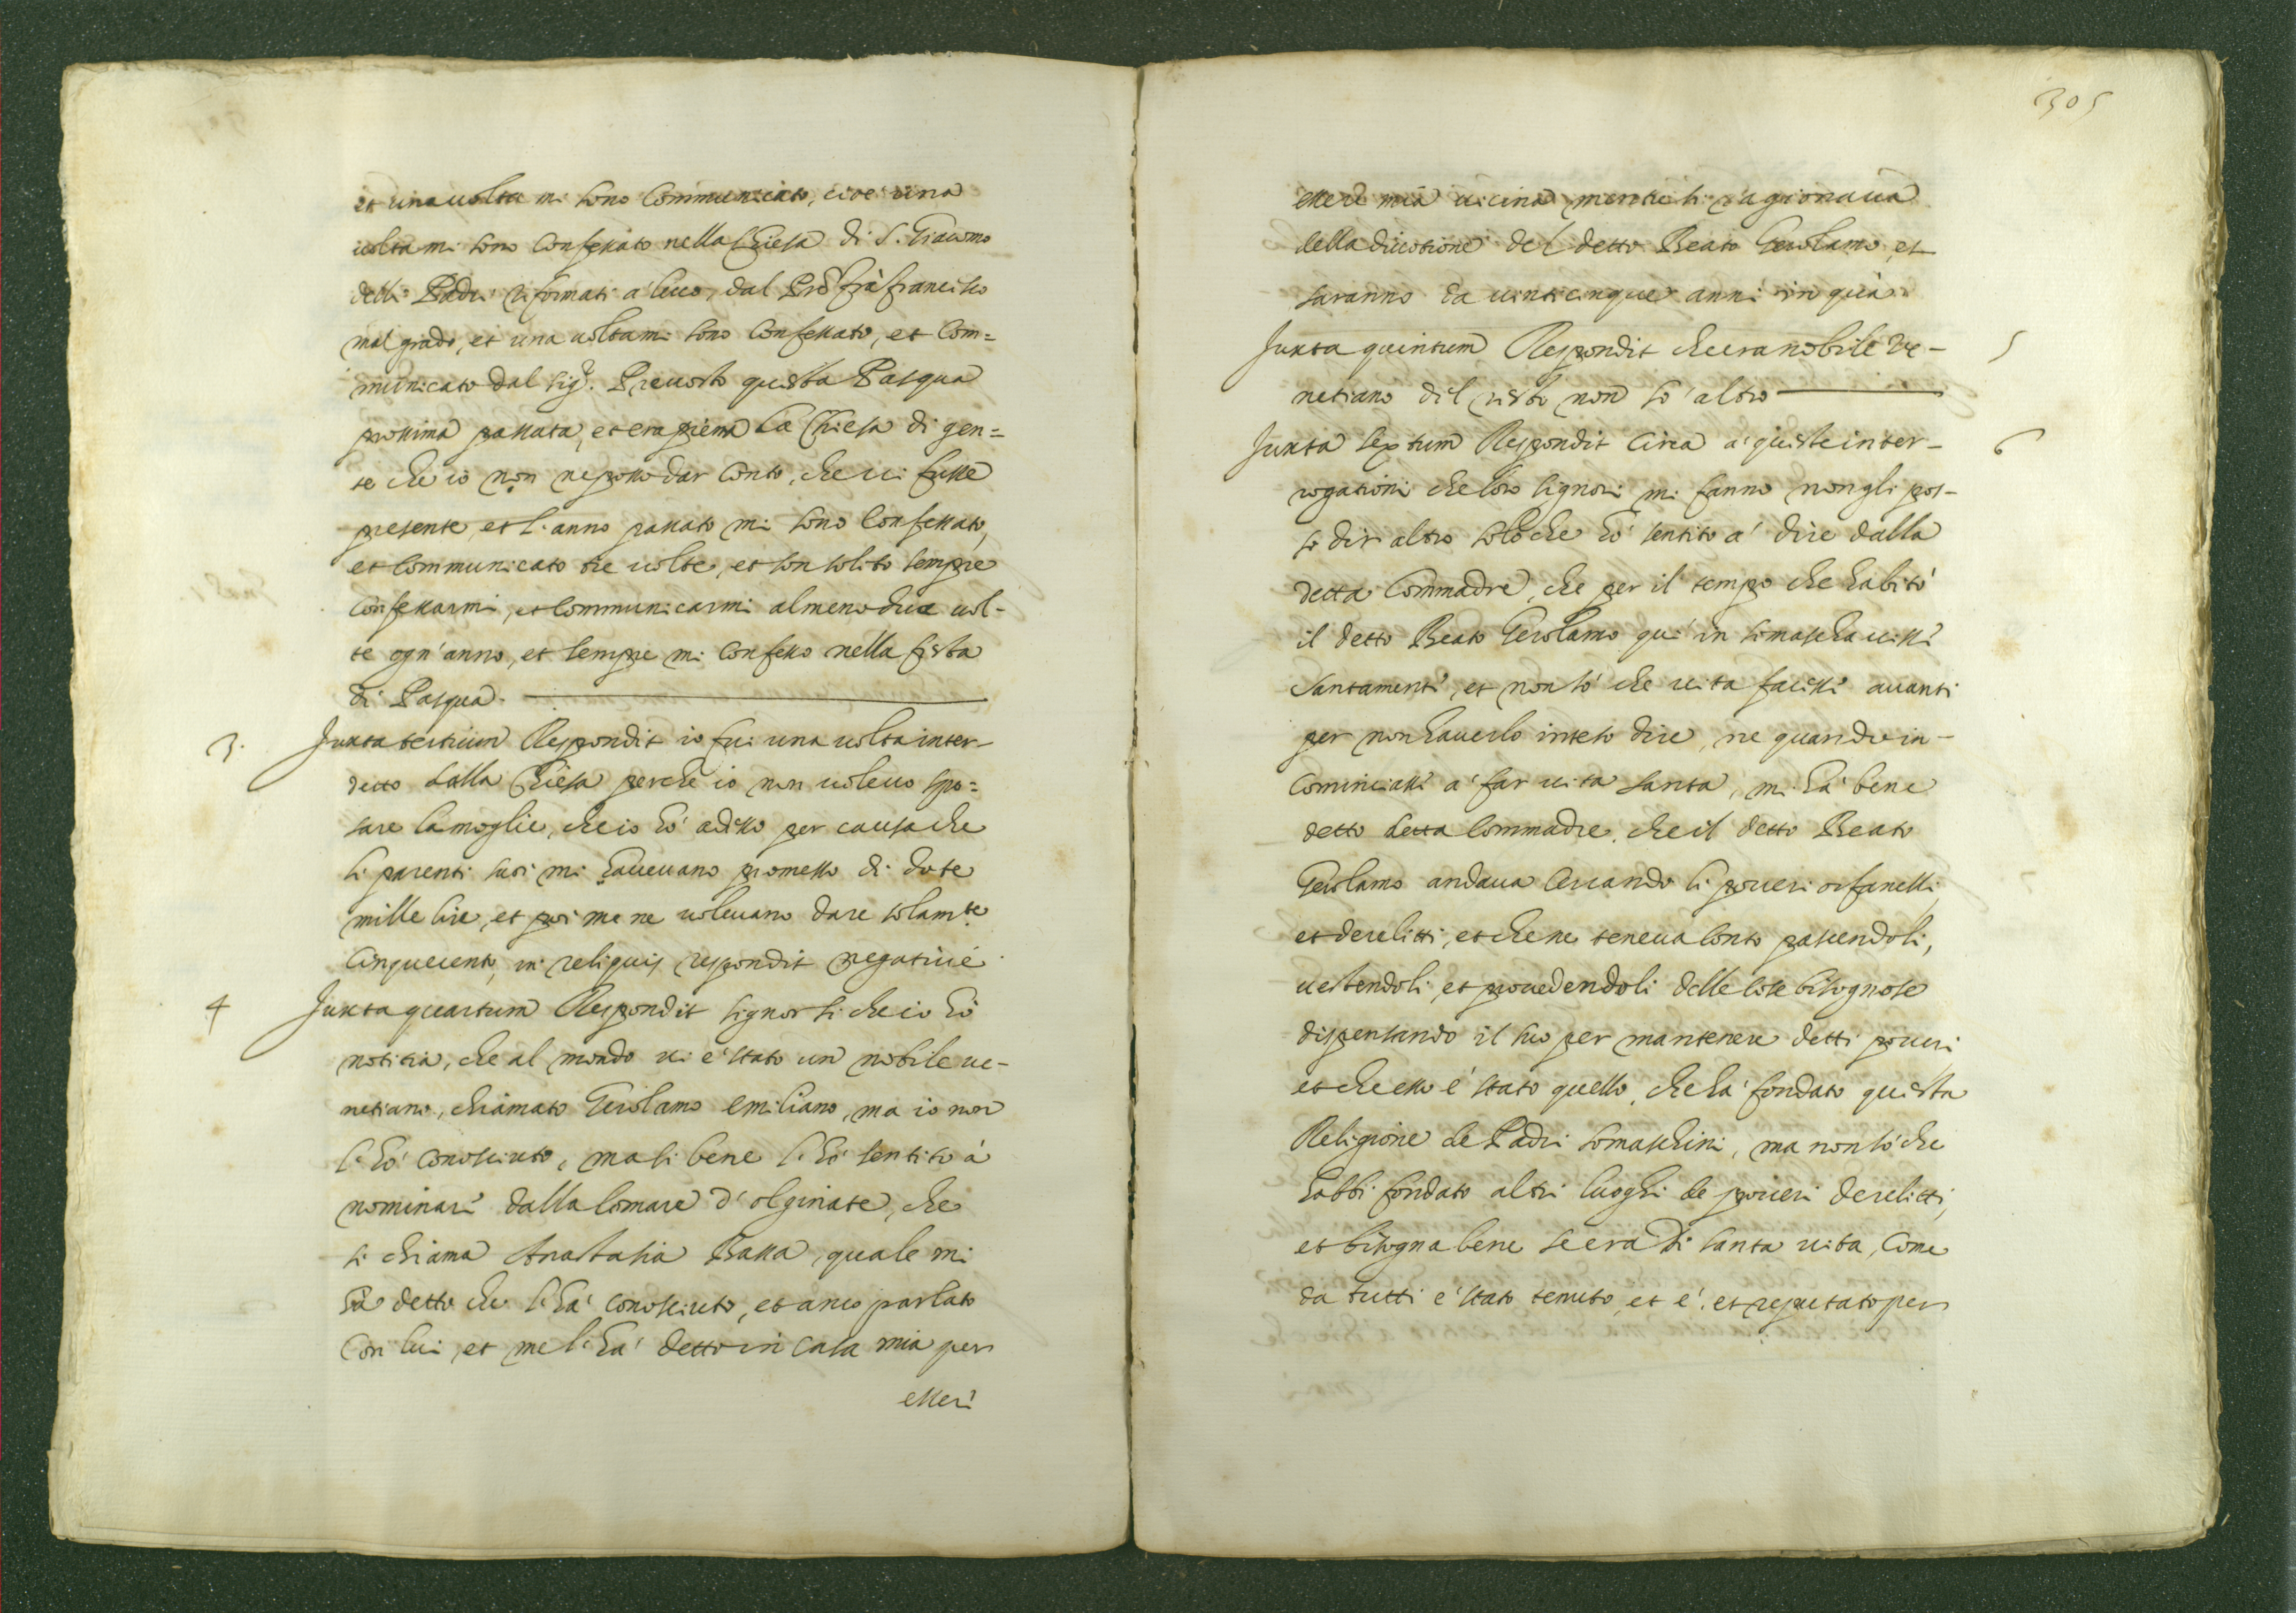 et una uolta mi sono Communicato, cioè una
uolta mi sono Confessato nella Chiesa di S. Giacomo
delli Padri riformati a' lecco, dal Pre frà francisco
mal grado, et una uolta mi sono Confessato, et Com=
municato dal sigr. Preuosto questa Pasqua
prossima passata, et era piena la Chiesa di gen=
te che io non ne posso dar Conto, che ui fusse
presente, et l'anno passato mi sono Confessato,
et Communicato tre uolte, et son solito sempre
Confessarmi, et Communicarmi almeno due uol-
te ogn'anno, et sempre mi Confesso nella festa
di Pasqua.
3. Juxta tertium Respondit io fui una uolta inter-
detto dalla Chiesa perche io non uoleuo spo=
sare la moglie, che io hò adesso per causa che
li parenti suoi mi haueuano promesso di dote
mille lire, et poi me ne uoleuano dare solamte
Cinquecento, in reliquis respondit negatiuè.
4 Juxta quartum Respondit signor si che io hò
notitia, che al mondo ui è stato un nobile ue-
netiano, chiamato Gerolamo emiliano, ma io non
l'hò conosciuto, ma si bene l'hò sentito à
nominare dalla Comare d'olginate, che
si chiama Anastasia Bassa, quale mi
hà detto che l'hà conosciuto, et anco parlato
Con lui, et me l'hà detto in casa mia per
essere
305
essere mia uicina mentre si ragionaua
della diuotione del detto Beato Gerolamo, et
saranno da uinticinque anni in quà.
Juxta quintum Respondit che era nobile Ve- 5
netiano del resto non sò altro
Juxta sextum Respondit Circa a' queste inter- 6
rogationi che loro signori mi fanno non gli pos-
so dir altro solo che hò sentito a' dire dalla
detta Commadre, che per il tempo che habitò
il detto Beato Gerolamo qui in somascha uisse
Santamente, et non sò che uita facesse auanti
per non hauerlo inteso dire, ne quando in-
Cominciasse a' far uita santa, mi hà bene
detto detta Commadre, che il detto Beato
Gerolamo andaua Cercando li poueri orfanelli,
et derelitti, et che ne teneua Conto pascendoli,
uestendoli, et prouedendoli delle Cose bisognose
dispensando il suo per mantenere detti poueri
et che esso è stato quello, che hà fondato questa
Religione de Padri somaschini, ma non sò che
habbi fondato altri luoghi de poueri derelitti,
et bisogna bene se era di santa uita, Come
da tutti è stato tenuto, et è, et reputato per